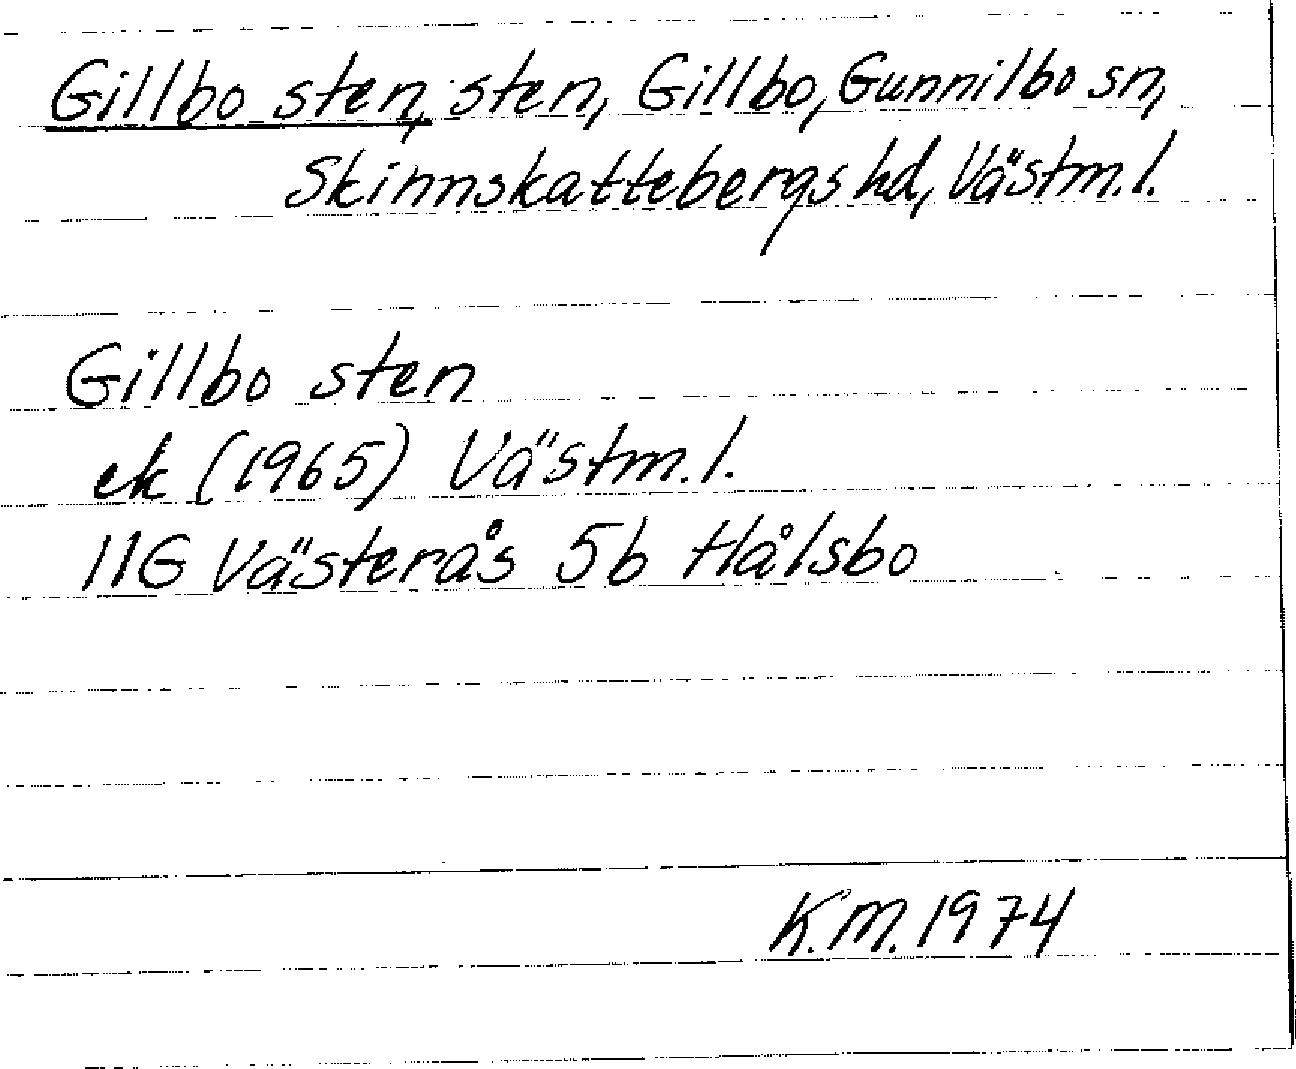 Gillbo sten, sten, Gillbo, Gunnilbo sn,
Skinnskattebergs hd, Västm.l.
Gillbo sten
ek (1965) Västm.l.
11G Västerås 5b Hålsbo
K.M. 1974